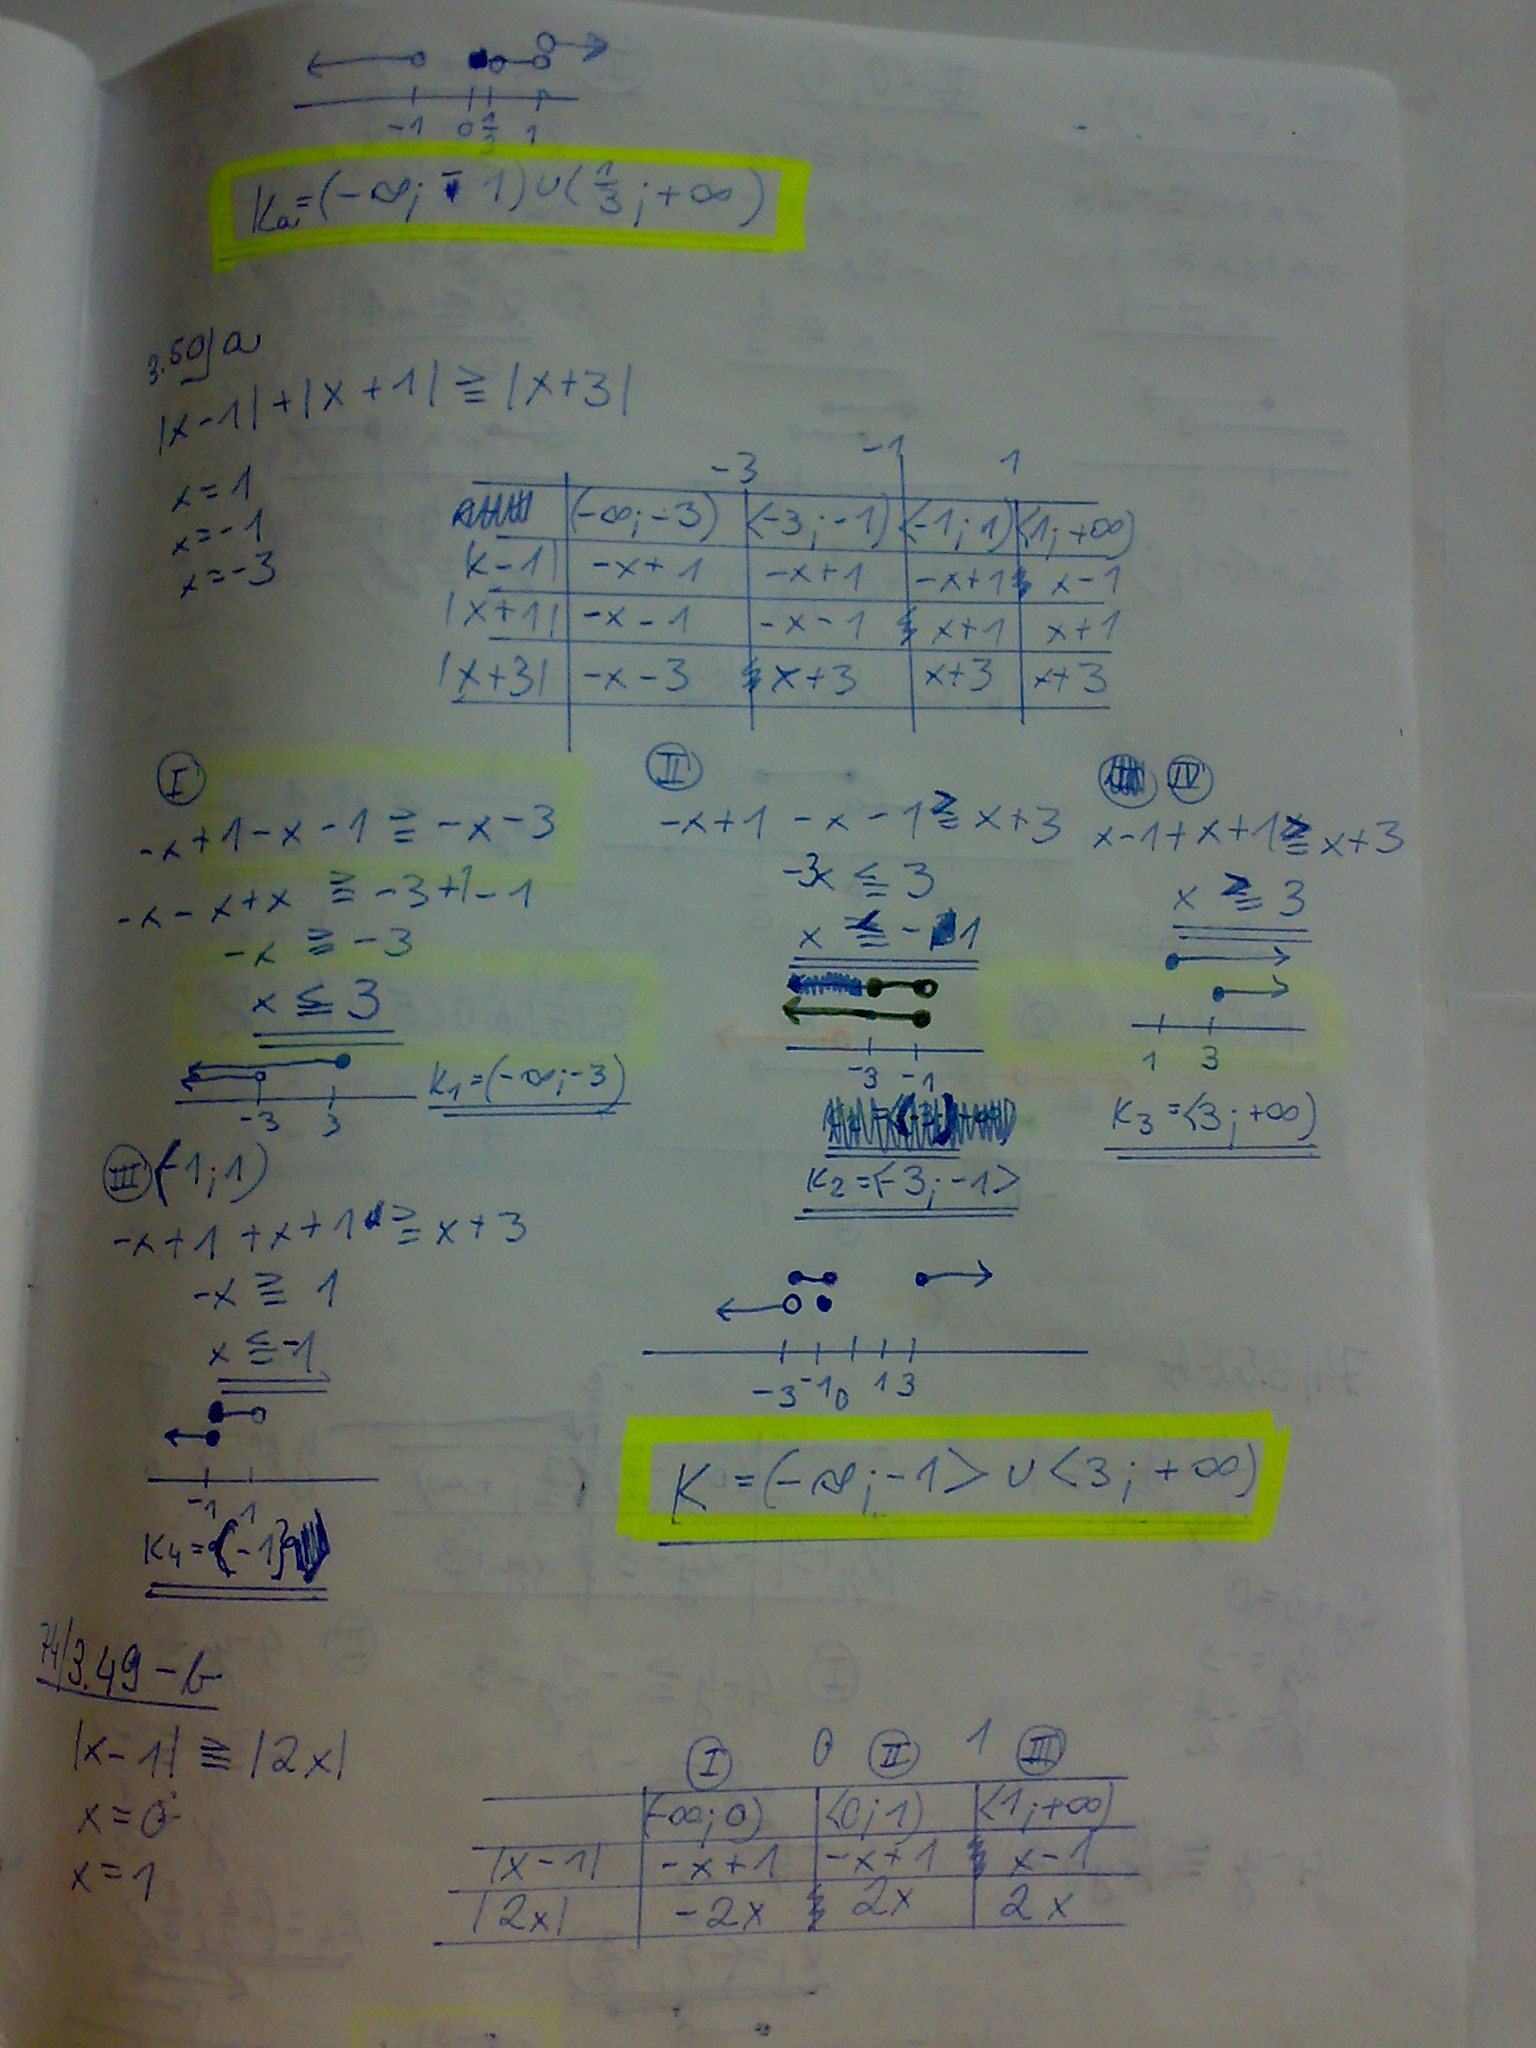 -1 0 1/3 1
Ka=(-∞;-1)∪(1/3;+∞)
3.50/a
|x-1|+|x+1| ≧ |x+3|
x=1
x=-1
x=-3
-3 -1 1
(-∞;-3) <-3;-1) <-1;1) <1;+∞)
|x-1| -x+1 -x+1 -x+1 x-1
|x+1| -x-1 -x-1 x+1 x+1
|x+3| -x-3 x+3 x+3 x+3
I
-x+1-x-1 ≧ -x-3
-x-x+x ≧ -3+1-1
-x ≧ -3
x ≦ 3
-3 3
K1=(-∞;-3)
II
-x+1 -x-1 ≧ x+3
-3x ≦ 3
x ≦ -1
-3 -1
K2=<-3;-1>
IV
x-1+x+1 ≧ x+3
x ≧ 3
1 3
K3=<3;+∞)
III (-1;1)
-x+1+x+1 ≧ x+3
-x ≧ 1
x ≦ -1
-1 1
K4={-1}
-3 -1 0 1 3
K=(-∞;-1> ∪ <3;+∞)
74/3.49-b
|x-1| ≧ |2x|
x=0
x=1
I 0 II 1 III
(-∞;0) <0;1) <1;+∞)
|x-1| -x+1 -x+1 x-1
|2x| -2x 2x 2x